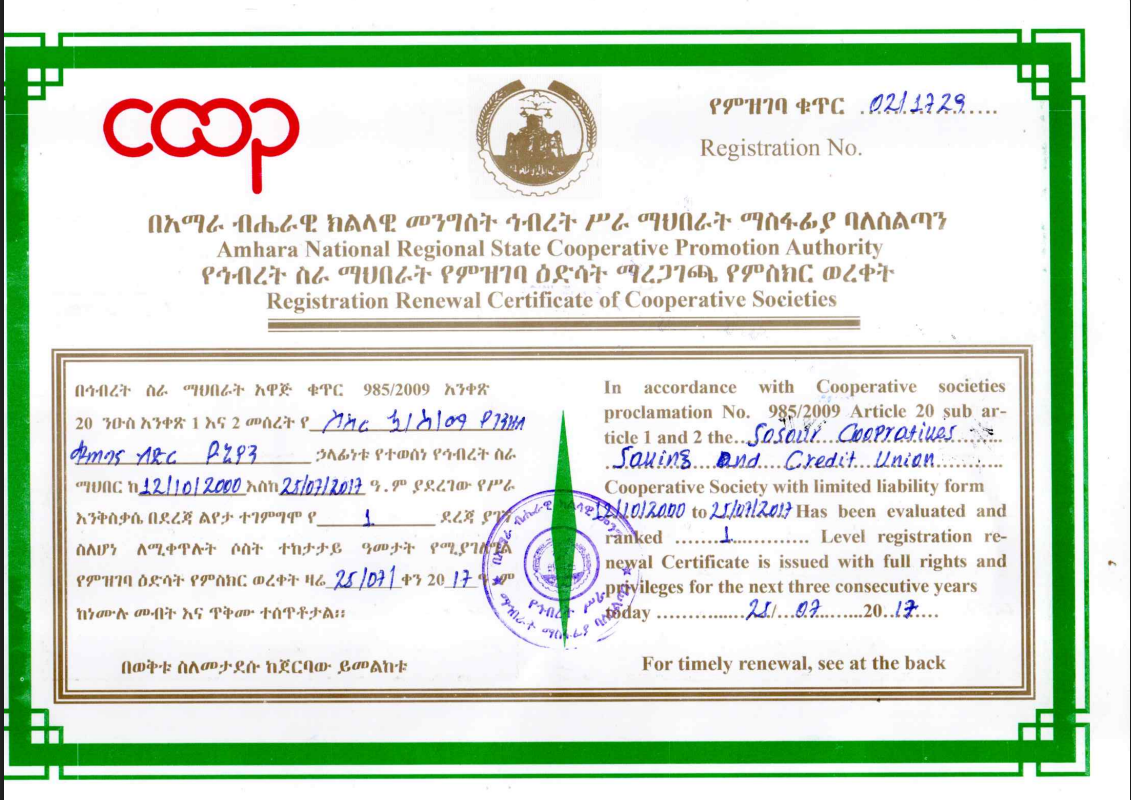 coop
የምዝገባ ቁጥር 02/1729
Registration No.
በአማራ ብሔራዊ ክልላዊ መንግስት ኅብረት ሥራ ማህበራት ማስፋፊያ ባለስልጣን
Amhara National Regional State Cooperative Promotion Authority
የኅብረት ስራ ማህበራት የምዝገባ ዕድሳት ማረጋገጫ የምስክር ወረቀት
Registration Renewal Certificate of Cooperative Societies
በኅብረት ስራ ማህበራት አዋጅ ቁጥር 985/2009 አንቀጽ
20 ንዑስ አንቀጽ 1 እና 2 መሰረት የ
ኃላፊነቱ የተወሰነ የኅብረት ስራ
ማህበር ከ 12/10/2000 እስከ 25/07/2017 ዓ.ም ያደረገው የሥራ
እንቅስቃሴ በደረጃ ልየታ ተገምግሞ የ 1 ደረጃ ያገኘ
ስለሆነ ለሚቀጥሉት ሶስት ተከታታይ ዓመታት የሚያገለግል
የምዝገባ ዕድሳት የምስክር ወረቀት ዛሬ 25/07/ ቀን 20 17 ዓ ም
ከነሙሉ መብት እና ጥቅሙ ተሰጥቶታል፡፡
በወቅቱ ስለመታደሱ ከጀርባው ይመልከቱ
In accordance with Cooperative societies
proclamation No. 985/2009 Article 20 sub ar-
ticle 1 and 2 the Coopratives
Saving and Credit Union
Cooperative Society with limited liability form
12/10/2000 to 25/07/2017 Has been evaluated and
ranked 1 Level registration re-
newal Certificate is issued with full rights and
privileges for the next three consecutive years
today 25/ 07 20 17
For timely renewal, see at the back